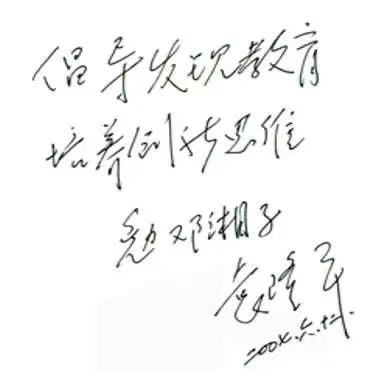 倡导发现教育
培养创新思维
勉邓湘子
袁隆平
2004.六.十八.